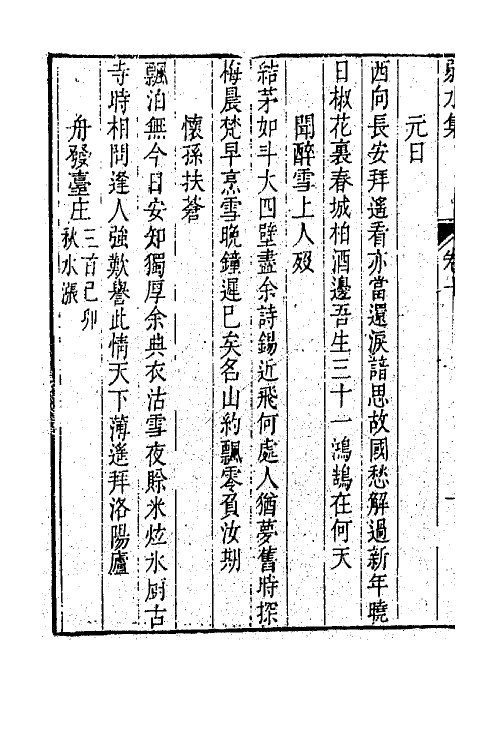 元日
西向長安拜遙看亦當還淚諳思故國愁解過新年曉
日椒花裏春城柏酒邊吾生三十一鴻鵠在何天
聞醉雪上人歿
結茅如斗大四壁盡余詩錫近飛何處人猶夢舊時探
梅晨梵早烹雪晚鐘遲已矣名山約飄零負汝期
懷孫扶蒼
飄泊無今日安知獨厚余典衣沽雪夜賒米炫氷厨古
寺時相問逢人強歎譽此情天下薄遙拜洛陽廬
舟發臺庄三首己卯
秋水漲